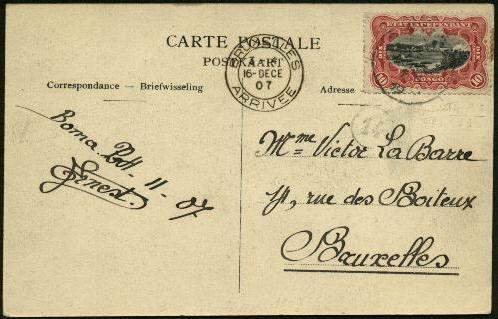 CARTE POSTALE
POSTKAART
Correspondance — Briefwisseling
Adresse
BRUXELLES
16-DECE
07
ARRIVEE
ETAT INDEPENDANT
DU CONGO
DIX
10
10
Boma 11-07
Mme Victor La Barre
rue des Boiteux
Bruxelles